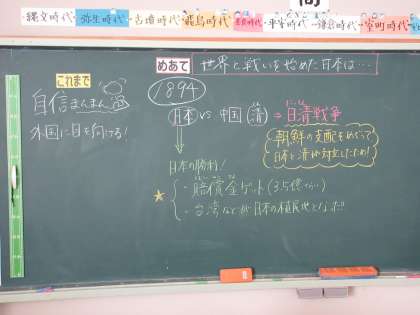 縄文時代 弥生時代 古墳時代 飛鳥時代 奈良時代 平安時代 鎌倉時代 室町時代
めあて 世界と戦いを始めた日本は…
これまで
自信まんまん
外国に目を向ける!
1894
日本 VS 中国(清) ⇒ 日清戦争
朝鮮の支配をめぐって
日本と清が対立したため!
日本の勝利!
★ ・賠償金ゲット(3.5億
・台湾などが日本の植民地となった!!